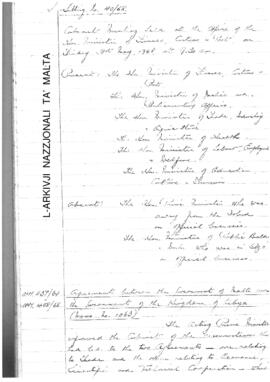 Sitting No. 40/65.
Cabinet Meeting held at the Office of the
Hon. Minister of Finance, Customs & Port on
May, 1965 at 9.30 a.m.
Present: The Hon. Minister of Finance, Customs &
Port
The Hon. Minister of Justice and
Parliamentary Affairs.
The Hon. Minister of Trade, Industry
& Agriculture
The Hon. Minister of Health
The Hon. Minister of Labour, Employment
& Welfare.
The Hon. Minister of Education
Culture & Tourism
Absent: The Hon. Prime Minister who was
away from the Island
on official business.
The Hon. Minister of Public Building
& Works who was in
on official business.
L-ARKIVJI NAZZJONALI TA' MALTA
Agreement between the Government of Malta and
the Government of the Kingdom of Libya
(Memo. No. 1063)
The Acting Prime Minister
informed the Cabinet of the circumstances that
led to the two Agreements - one relating
to Trade and the other relating to Economic,
Scientific and Technical Cooperation -